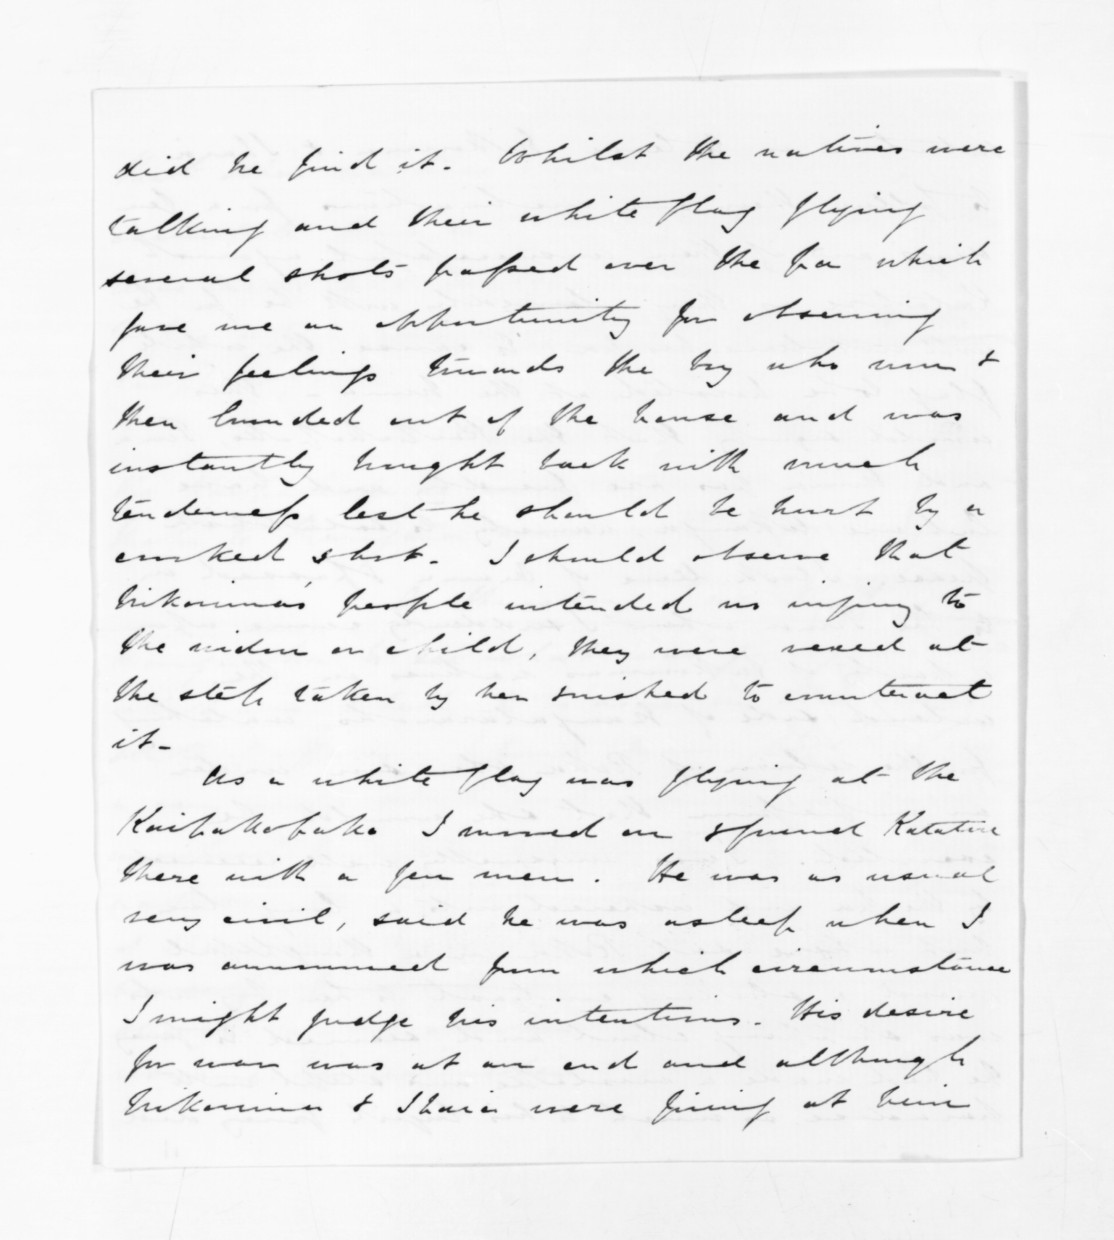 did he find it. Whilst the natives were
talking and their white flag flying
several shots passed over the pa which
gave me an opportunity for observing
their feelings towards the boy who now &
then bounded out of the house and was
instantly brought back with much
tenderness lest he should be hurt by a
crooked shot. I should observe that
Ihikorima's people intended no injury to
the widow or child, they were vexed at
the step taken by her & wished to counteract
it.
As a white flag was flying at the
Kaihakohako I moved on & found Katatore
there with a few men. He was as usual
very civil, said he was asleep when I
was announced from which circumstance
I might judge his intentions. His desire
for war was at an end and although
& Ihaia were firing at him